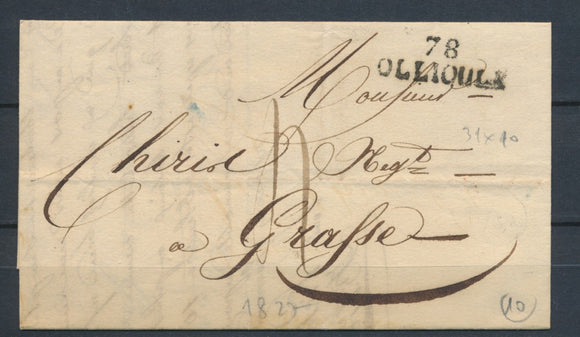 78
OLLIOULE
Monsieur
31x10
Chiris Negt
a Grasse
10